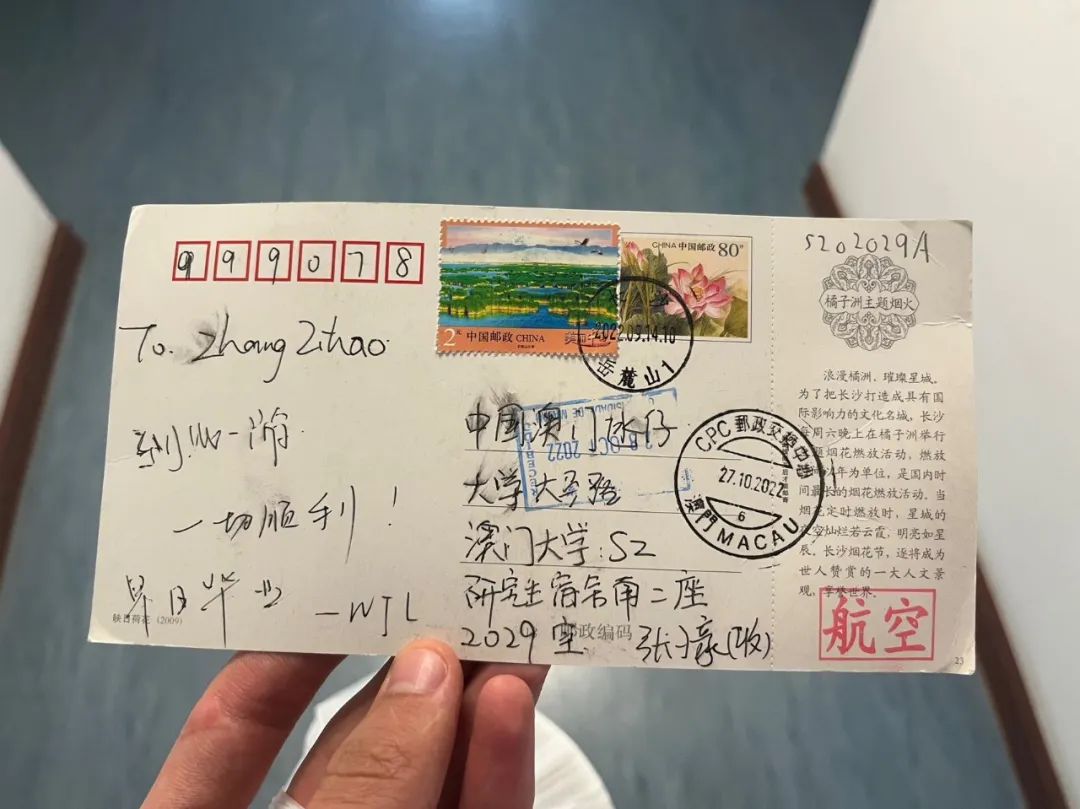 999078
To. Zhang Zihao
一切顺利！
早日毕业
—WJL
映日荷花 (2009)
2元 中国邮政 CHINA
CHINA 中国邮政 80分
2022.09.14.10
岳麓山1
中国澳门氹仔
大学大马路
澳门大学：S2
研究生宿舍南二座
2029室 张子豪(收)
邮政编码
OCT 2022
CPC 郵政交換中心
27.10.2022
6
澳門 MACAU
S202029A
橘子洲主题烟火
浪漫橘洲、璀璨星城。
为了把长沙打造成具有国
际影响力的文化名城，长沙
每周六晚上在橘子洲举行
主题烟花燃放活动，燃放
以年为单位，是国内时
间最长的烟花燃放活动。当
烟花定时燃放时，星城的
夜空灿烂若云霞，明亮如星
辰。长沙烟花节，逐将成为
世人赞赏的一大人文景
观，享誉世界。
航空
23